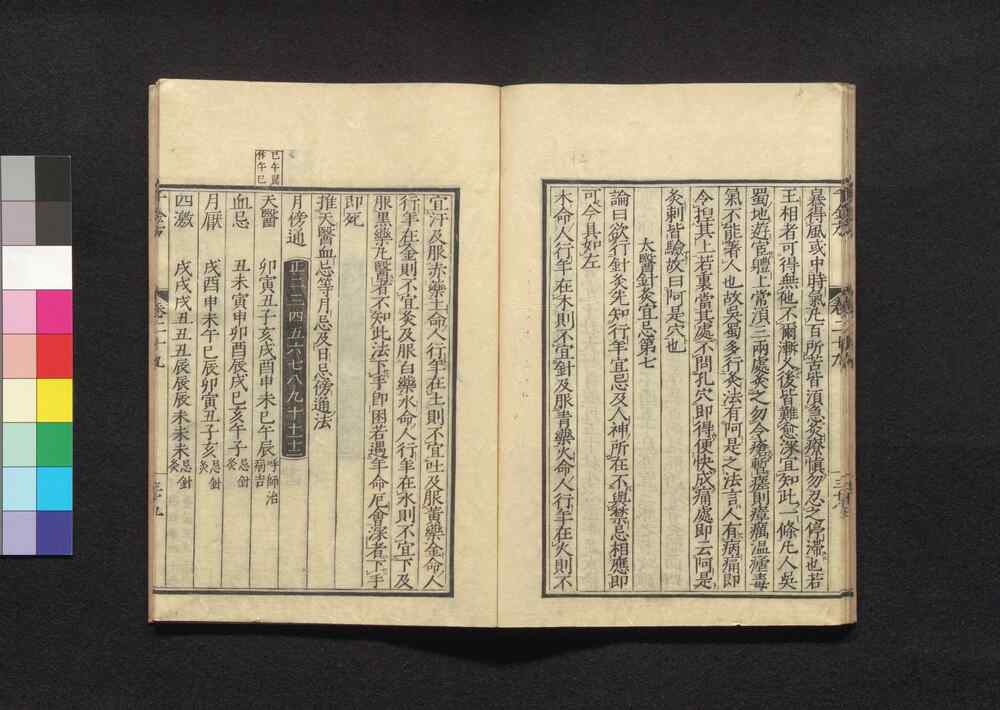 暴得風或中時氣凢百所苦皆湏急灸療愼勿忍之停滯也若
王相者可得無他不爾漸久後皆難愈深宜知此一條凢人吳
蜀地遊官體上常湏三兩處灸之勿令瘡暫瘥則瘴癘温瘧毒
氣不能著人也故吳蜀多行灸法有阿是之法言人有病痛即
令揑其上若裏當其處不問孔穴即得便快成痛處即云阿是
灸刺皆驗故曰阿是穴也
太醫針灸宜忌第七
論曰欲行針灸先知行年宜忌及人神所在不與禁忌相應即
可今具如左
木命人行年在木則不宜針及服青藥火命人行年在火則不
宜汗及服赤藥土命人行年在土則不宜吐及服黃藥金命人
行年在金則不宜灸及服白藥水命人行年在水則不宜下及
服黑藥凢醫者不知此法下手即困若遇年命厄會深者下手
即死
推天醫血忌等月忌及日忌傍通法
月傍通 正二三四五六七八九十十一十二
天醫 卯寅丑子亥戌酉申未巳午辰 呼師治病吉
血忌 丑未寅申卯酉辰戌巳亥午子 忌針灸
月厭 戌酉申未午巳辰卯寅丑子亥 忌針灸
四激 戌戌戌丑丑丑辰辰辰未未未 忌針灸
千金方 卷二十九